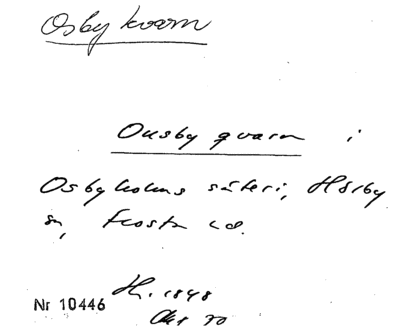 Osby kvarn
Ousby qvarn i
Osbyholms säteri, Hörby
sn, Frosta hd.
Nr 10446 H. 1848